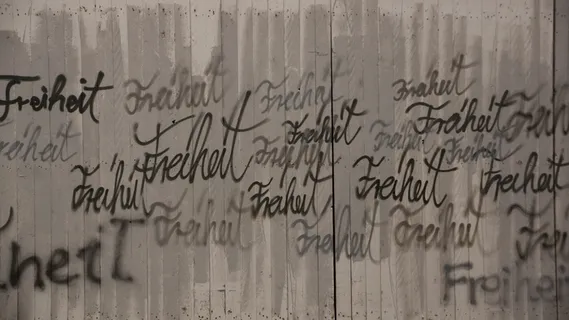 Freiheit
Freiheit
Freiheit
Freiheit
Freiheit
Freiheit
Freih
reiheit
Freiheit
Freiheit
Freiheit
Freiheit
Freiheit
Freiheit
Freiheit
Freiheit
Freiheit
Freiheit
Frei
iheit
Freihei